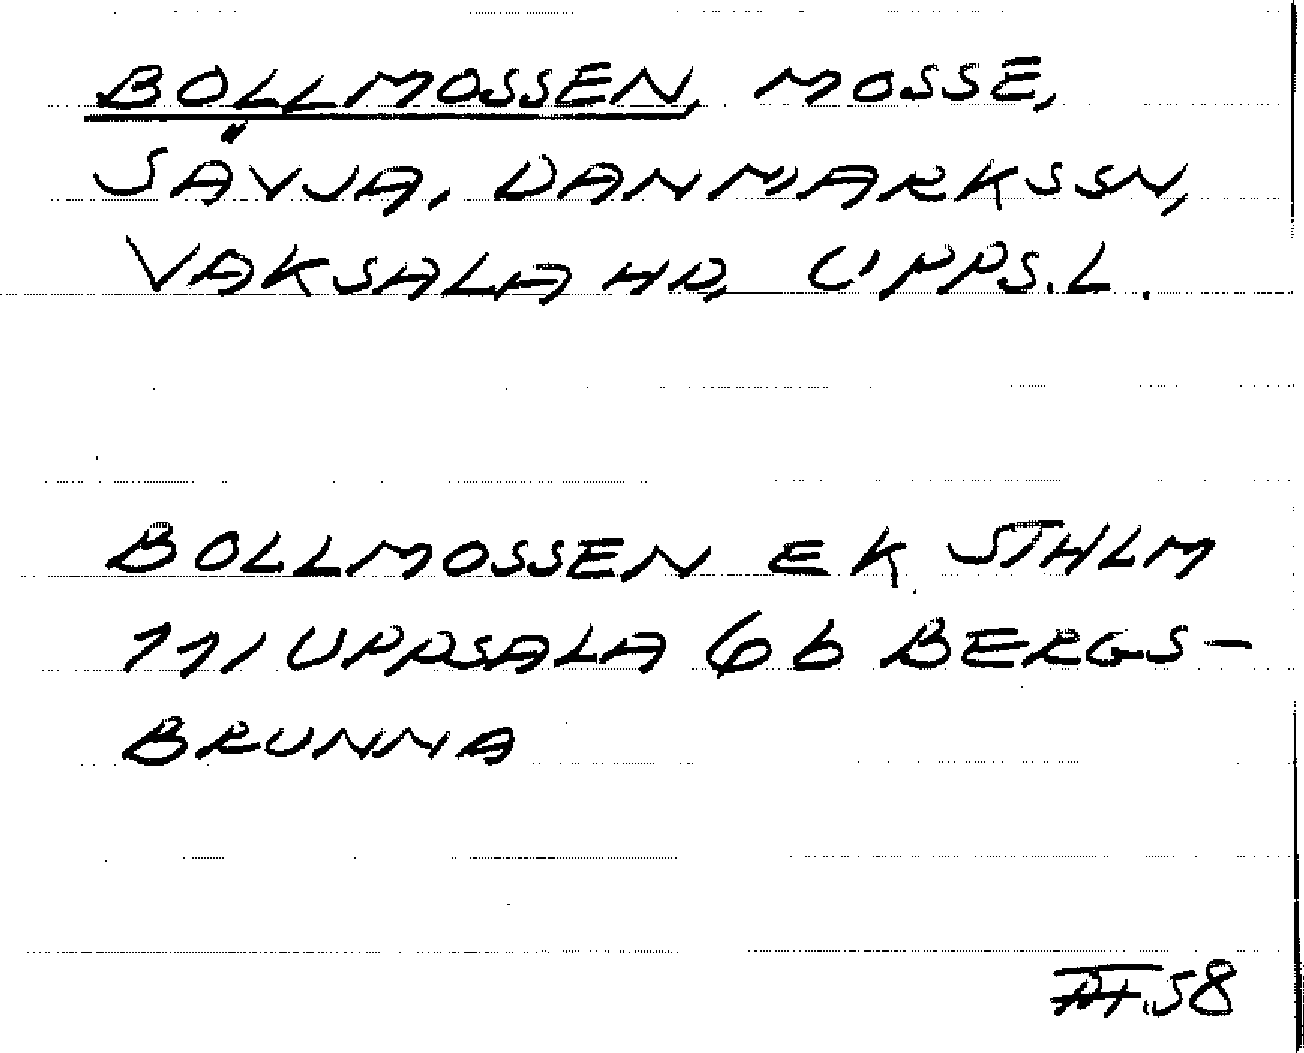 BOLLMOSSEN, MOSSE,
SÄVJA, DANMARKS SN,
VAKSALA HD, UPPS.L.
BOLLMOSSEN EK STHLM
111 UPPSALA 6b BERGS-
BRUNNA
58